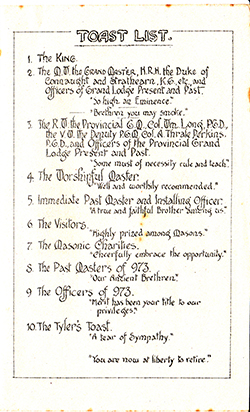 TOAST LIST.
1. The KING.
2. The M.W. the GRAND MASTER, H.R.H. the Duke of
Connaught and Strathearn, K.G. etc, and
Officers of Grand Lodge Present and Past.
"So high an Eminence."
"Brethren you may smoke."
3. The R.W. the Provincial G.M. Col. Wm. Long, P.G.D.,
the V.W. the Deputy P.G.M. Col. A. Thrale Perkins,
P.G.D., and Officers of the Provincial Grand
Lodge Present and Past.
"Some must of necessity rule and teach."
4. The Worshipful Master.
"Well and worthily recommended."
5. Immediate Past Master and Installing Officer.
"A true and faithful Brother among us."
6. The Visitors.
"Highly prized among Masons."
7. The Masonic Charities.
"Cheerfully embrace the opportunity."
8. The Past Masters of 973.
"Our Ancient Brethren."
9. The Officers of 973.
"Most has been your title to our
privileges."
10. The Tyler's Toast.
"A tear of Sympathy."
"You are now at liberty to retire."